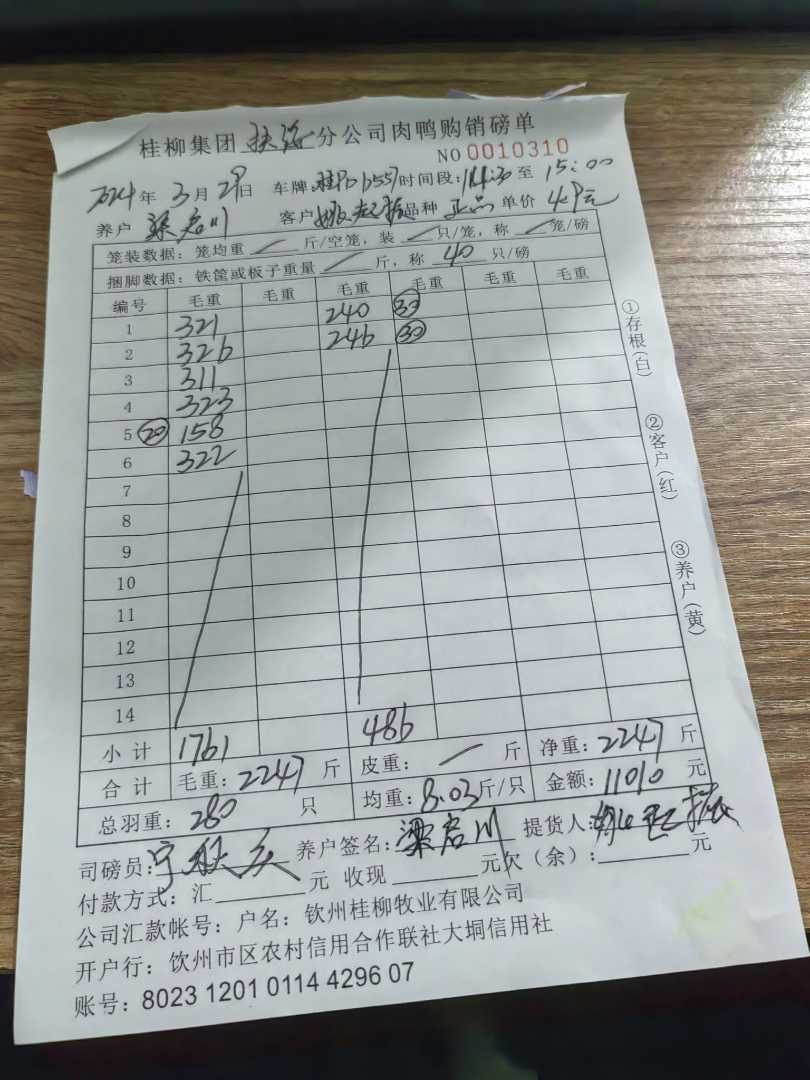 桂柳集团 扶绥 分公司肉鸭购销磅单
NO 0010310
2024年 3月29日 车牌:桂P·D6557 时间段:14:30至 15:00
养户 梁启川 客户 品种 正品 单价 4.9元
笼装数据:笼均重 / 斤/空笼,装 / 只/笼,称 / 笼/磅
捆脚数据:铁筐或板子重量 / 斤,称 40 只/磅
编号 毛重 毛重 毛重 毛重 毛重 毛重
1 321 240 30
2 326 246 30
3 311
4 323
5 20 158
6 322
7
8
9
10
11
12
13
14
小计 1761 486
合计 毛重:2247 斤 皮重: / 斤 净重:2247 斤
总羽重:280 只 均重:8.03斤/只 金额:11010 元
司磅员: 养户签名:梁启川 提货人:
付款方式:汇 元 收现 元欠(余): 元
公司汇款帐号:户名:钦州桂柳牧业有限公司
开户行:钦州市区农村信用合作联社大垌信用社
账号:8023 1201 0114 4296 07
①存根(白)
②客户(红)
③养户(黄)